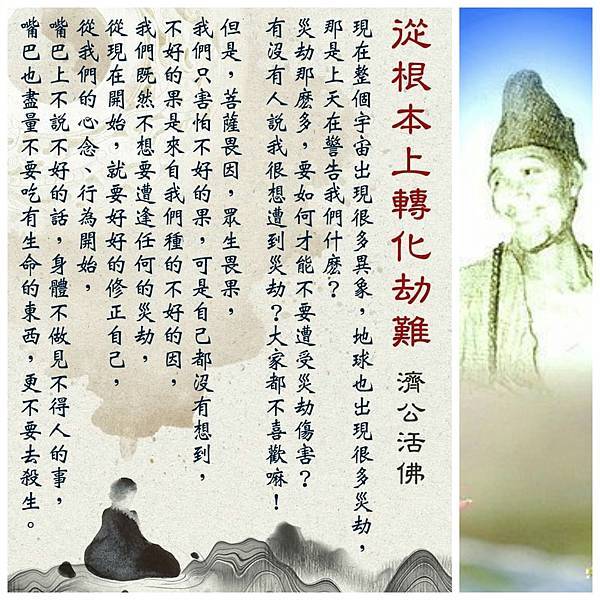 從根本上轉化劫難
濟公活佛
現在整個宇宙出現很多異象，地球也出現很多災劫，
那是上天在警告我們什麼？
災劫那麼多，要如何才能不要遭受災劫傷害？
有沒有人說我很想遭到災劫？大家都不喜歡嘛！
但是，菩薩畏因，眾生畏果，
我們只害怕不好的果，可是自己都沒有想到，
不好的果是來自我們種的不好的因，
我們既然不想要遭逢任何的災劫，
從現在開始，就要好好的修正自己，
從我們的心念、行為開始，
嘴巴上不說不好的話，身體不做見不得人的事，
嘴巴也盡量不要吃有生命的東西，更不要去殺生。